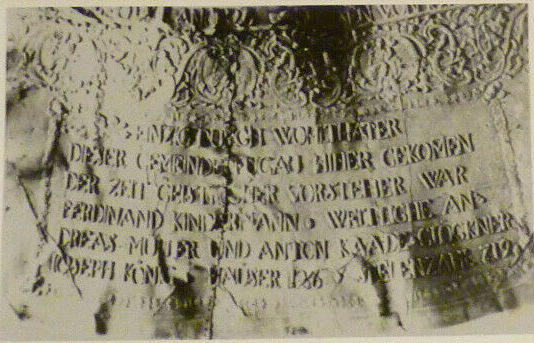 EINZIG DURCH WOHLTHÄTER
DIESER GEMEINDE PUGAU HIHER GEKOMEN
DER ZEIT GEISTLICHER VORSTEHER WAR
FERDINAND KINDERMANN WELTLICHE AN
DREAS MÜLLER UND ANTON KAADE GLÖCKNER
JOSEPH KÖNIG HÄUSER 126 SEELENZAHL 712